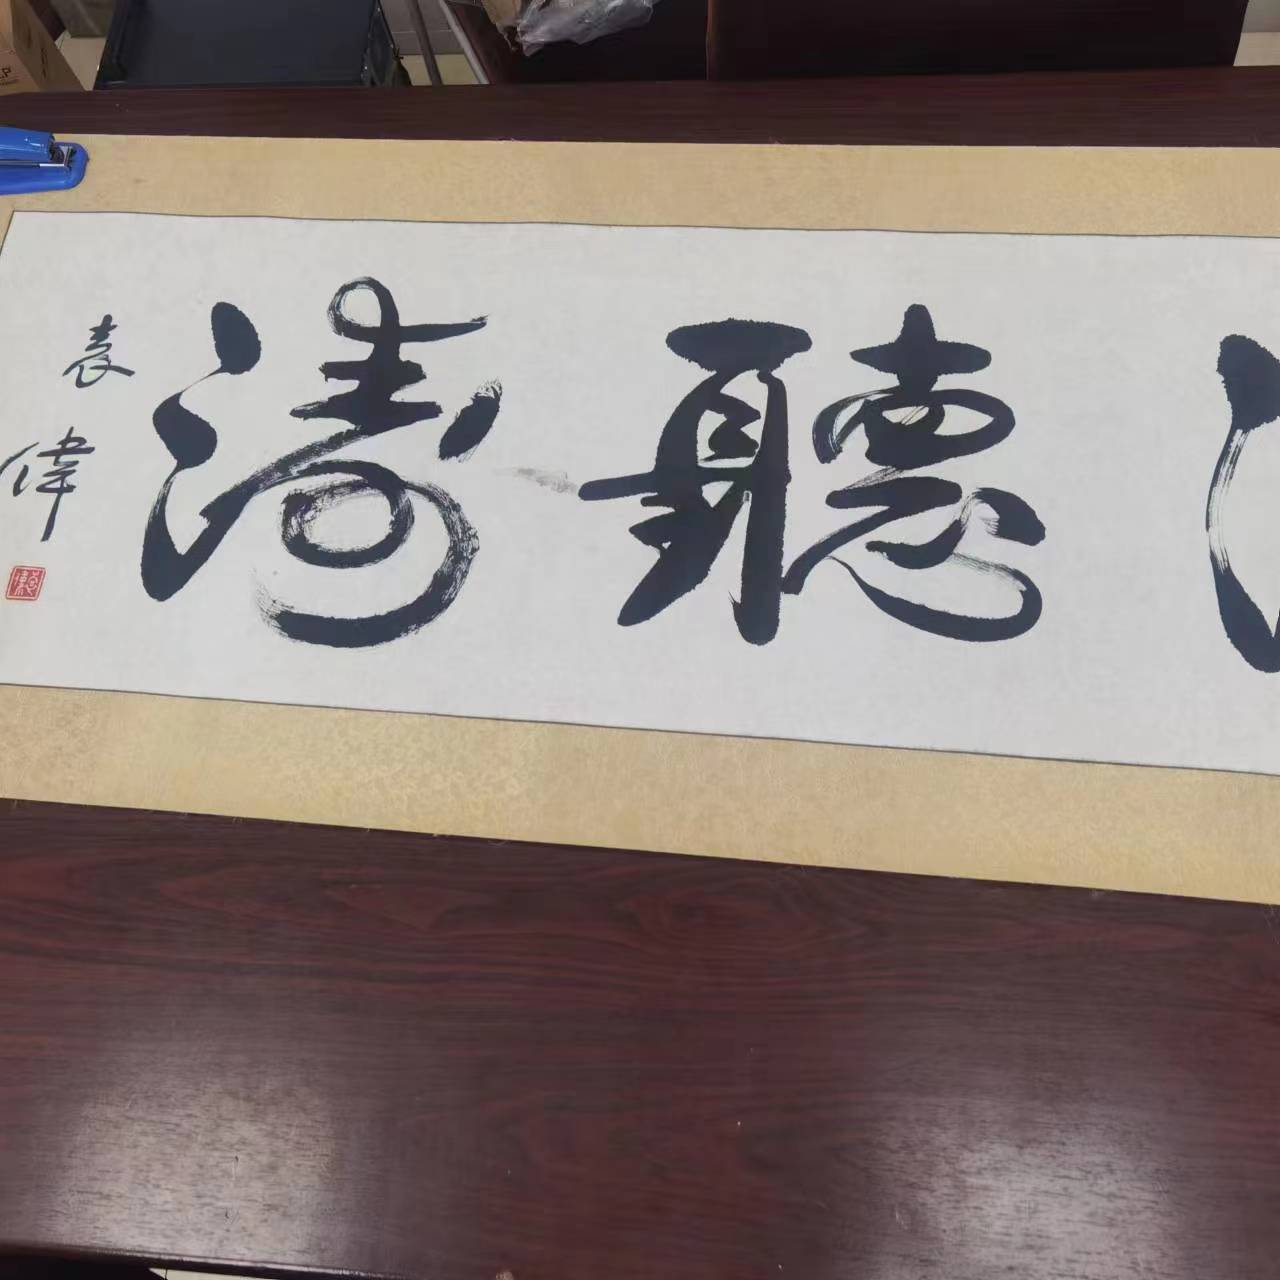 聽濤
袁偉